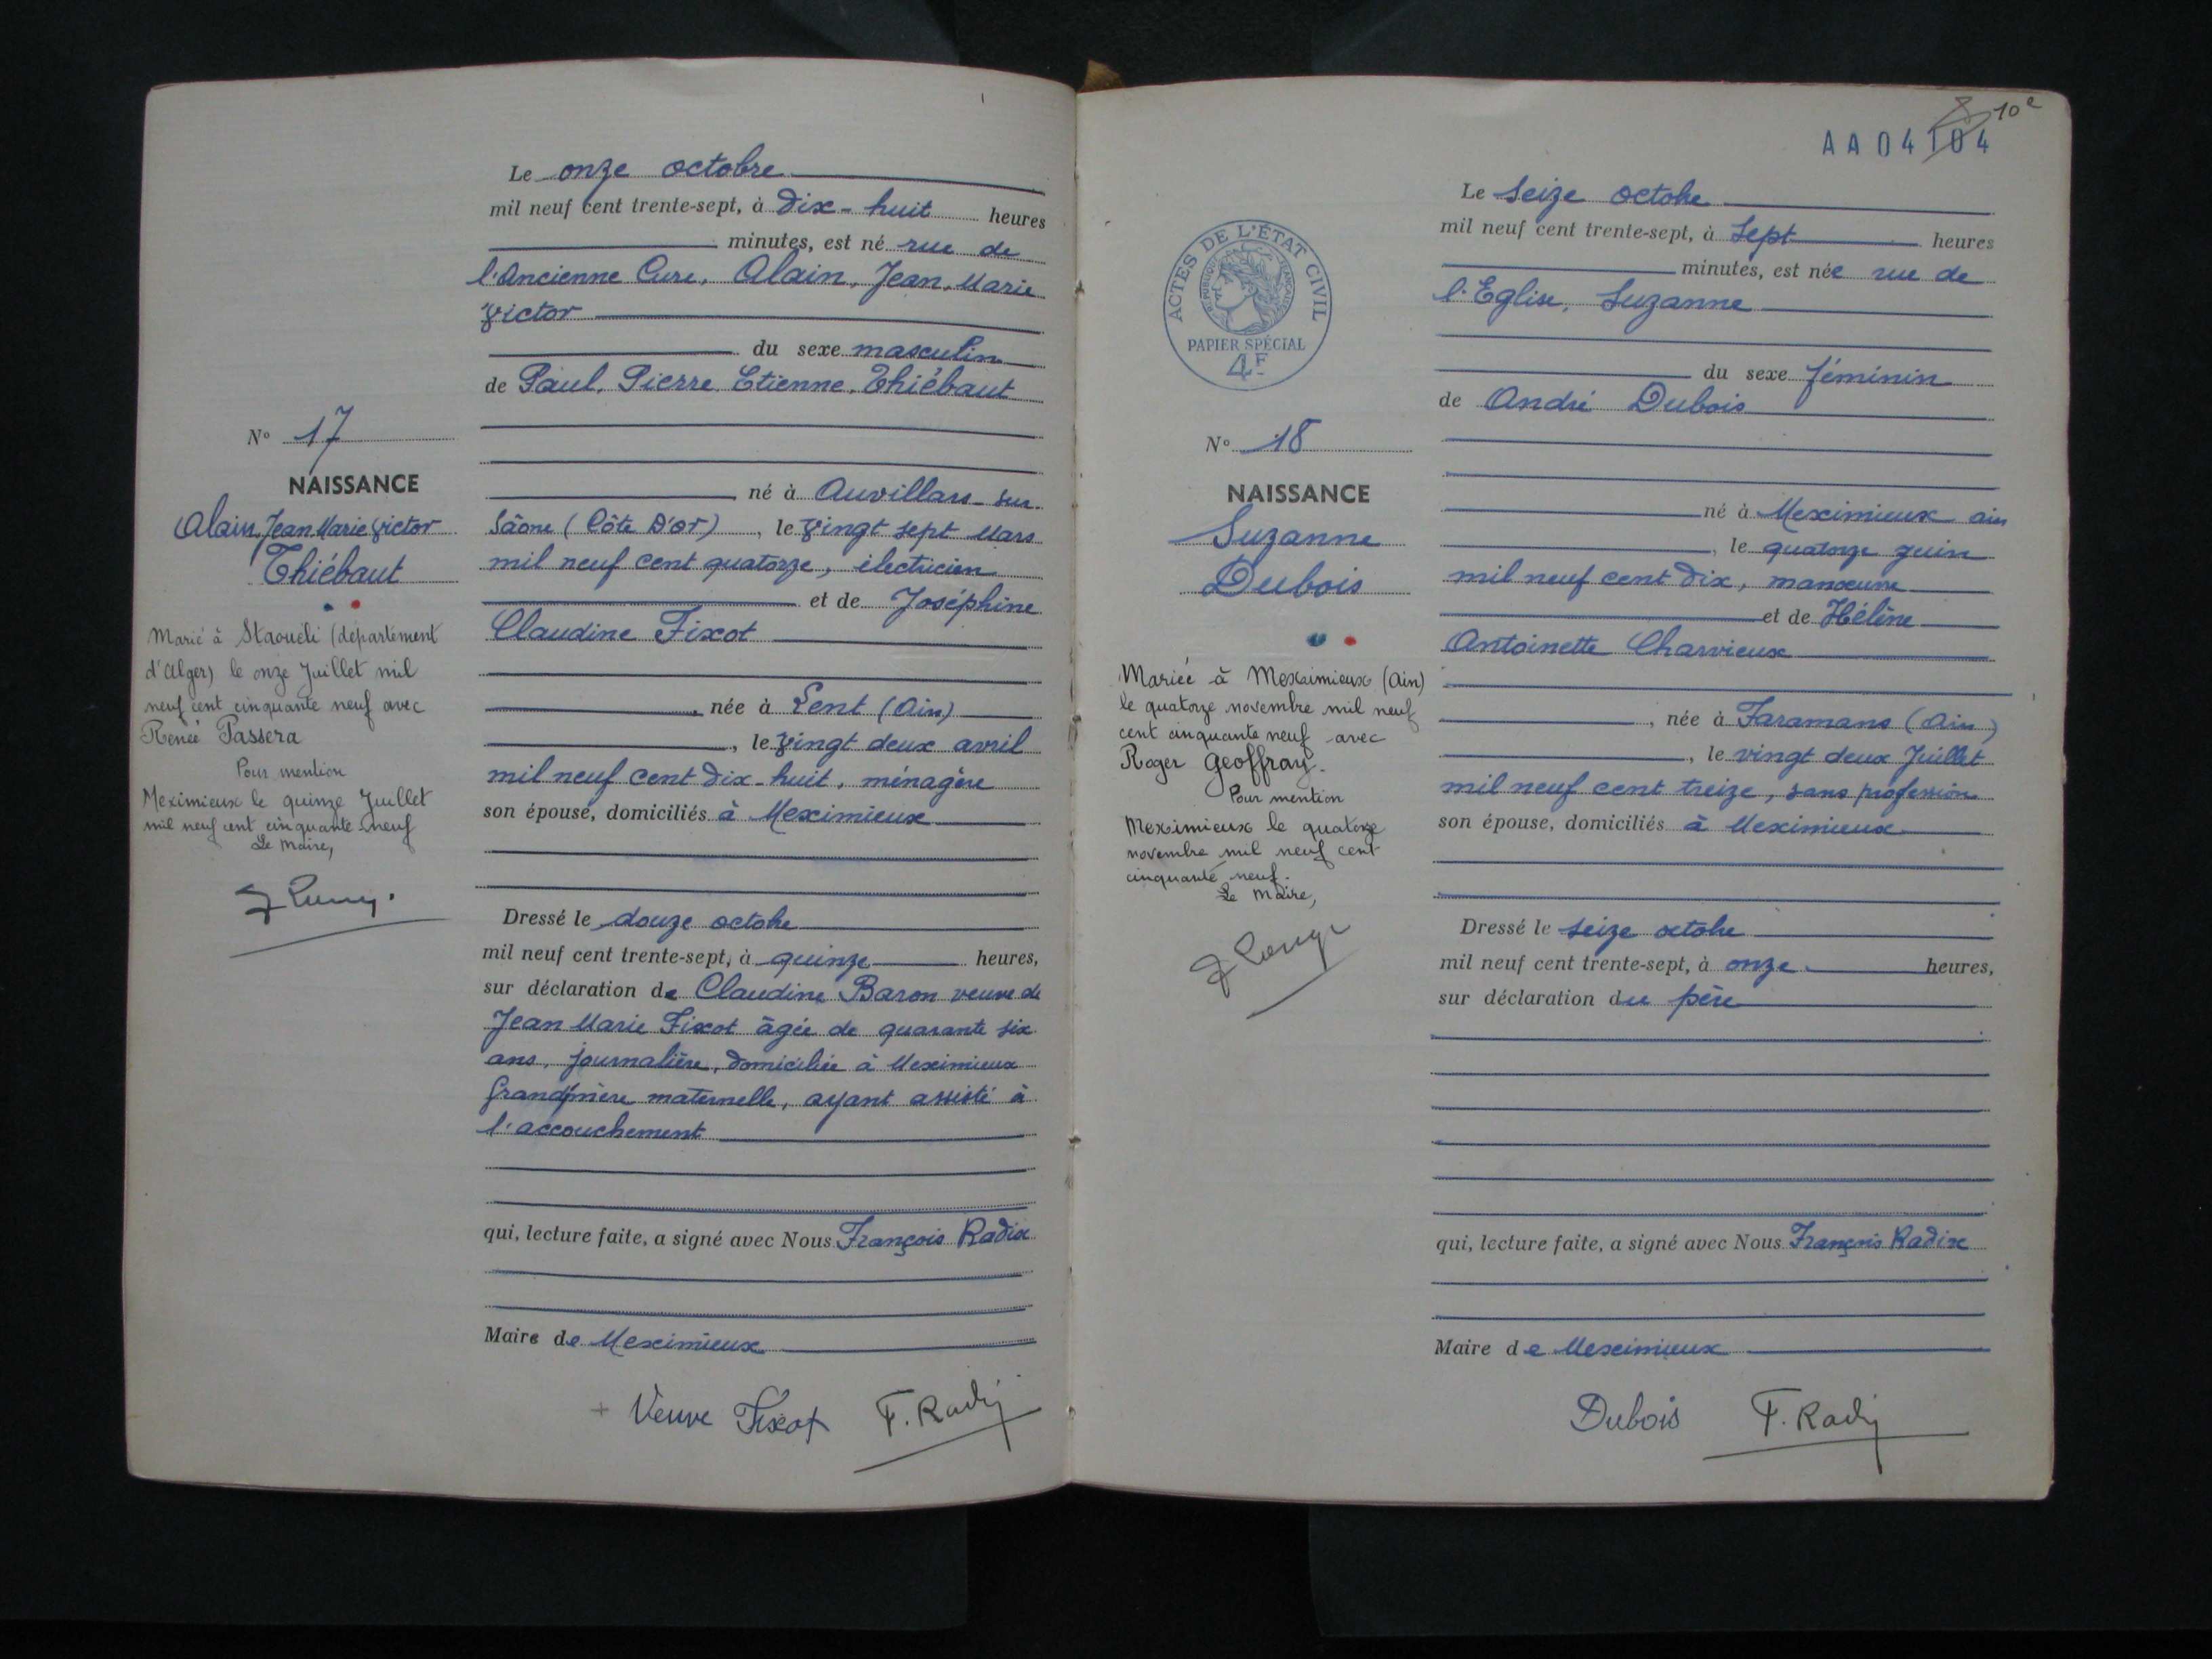 Le onze octobre
mil neuf cent trente-sept, à dix-huit heures
minutes, est né rue de
l'Ancienne Cure, Alain, Jean, Marie
Victor
du sexe masculin
de Paul, Pierre Etienne, Thiébaut
N° 17
NAISSANCE
Alain, Jean Marie Victor
Thiébaut
né à Auvillars-sur-
Saône (Côte D'or), le Vingt sept Mars
mil neuf cent quatorze, électricien
et de Joséphine
Claudine Fixot
, née à Lent (Ain)
, le Vingt deux avril
mil neuf cent dix-huit, ménagère
son épouse, domiciliés à Meximieux
Marié à Staouéli (département
d'Alger) le onze Juillet mil
neuf cent cinquante neuf avec
Renée Passera
Pour mention
Meximieux le quinze Juillet
mil neuf cent cinquante neuf
Le Maire,
Dressé le douze octobre
mil neuf cent trente-sept, à quinze heures,
sur déclaration de Claudine Baron veuve de
Jean Marie Fixot âgée de quarante six
ans, journalière, domiciliée à Meximieux
Grand'mère maternelle, ayant assisté à
l'accouchement
qui, lecture faite, a signé avec Nous François Radix
Maire de Meximieux
Veuve Fixot F. Radix
10e
AA04104
Le seize octobre
mil neuf cent trente-sept, à sept heures
minutes, est née rue de
l'Eglise, Suzanne
du sexe féminin
de André Dubois
ACTES DE L'ÉTAT CIVIL
RÉPUBLIQUE FRANÇAISE
PAPIER SPÉCIAL
4F
N° 18
NAISSANCE
Suzanne
Dubois
né à Meximieux ain
, le quatorze juin
mil neuf cent dix, manoeuvre
et de Hélène
Antoinette Charvieux
, née à Faramans (Ain)
, le vingt deux Juillet
mil neuf cent treize, sans profession
son épouse, domiciliés à Meximieux
Mariée à Meximieux (Ain)
le quatorze novembre mil neuf
cent cinquante neuf avec
Roger Geoffray.
Pour mention
Meximieux le quatorze
novembre mil neuf cent
cinquante neuf.
Le Maire,
Dressé le seize octobre
mil neuf cent trente-sept, à onze heures,
sur déclaration du père
qui, lecture faite, a signé avec Nous François Radix
Maire de Meximieux
Dubois F. Radix